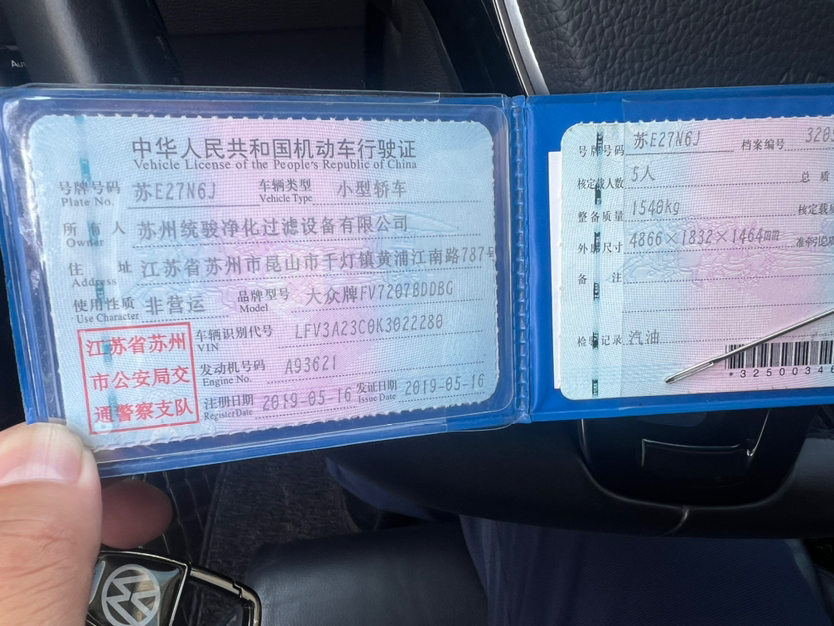 中华人民共和国机动车行驶证
Vehicle License of the People's Republic of China
号牌号码 苏E27N6J 车辆类型 小型轿车
Plate No. Vehicle Type
所有人 苏州统骏净化过滤设备有限公司
Owner
住址 江苏省苏州市昆山市千灯镇黄浦江南路787号
Address
使用性质 非营运 品牌型号 大众牌FV7207BDDBG
Use Character Model
车辆识别代号 LFV3A23C0K3022280
VIN
发动机号码 A93621
Engine No.
注册日期 2019-05-16 发证日期 2019-05-16
Register Date Issue Date
江苏省苏州
市公安局交
通警察支队
号牌号码 苏E27N6J 档案编号 3205
核定载人数 5人 总质
整备质量 1540kg 核定载
外廓尺寸 4866×1832×1464mm 准牵引总
备注
检验记录 汽油
*32500346